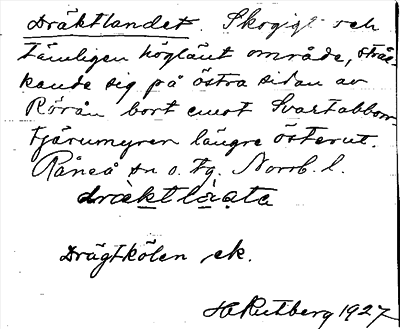 Dräktlandet. Skogigt och
tämligen högläut område, sträc-
kande sig på östra sidan av
Rörån bort emot Svartabborr-
tjärumyren längre österut.
Råneå sn o. tg. Norrb. l.
dräktlɑ̀ata
Drägtkölen ek.
H Rutberg 1927